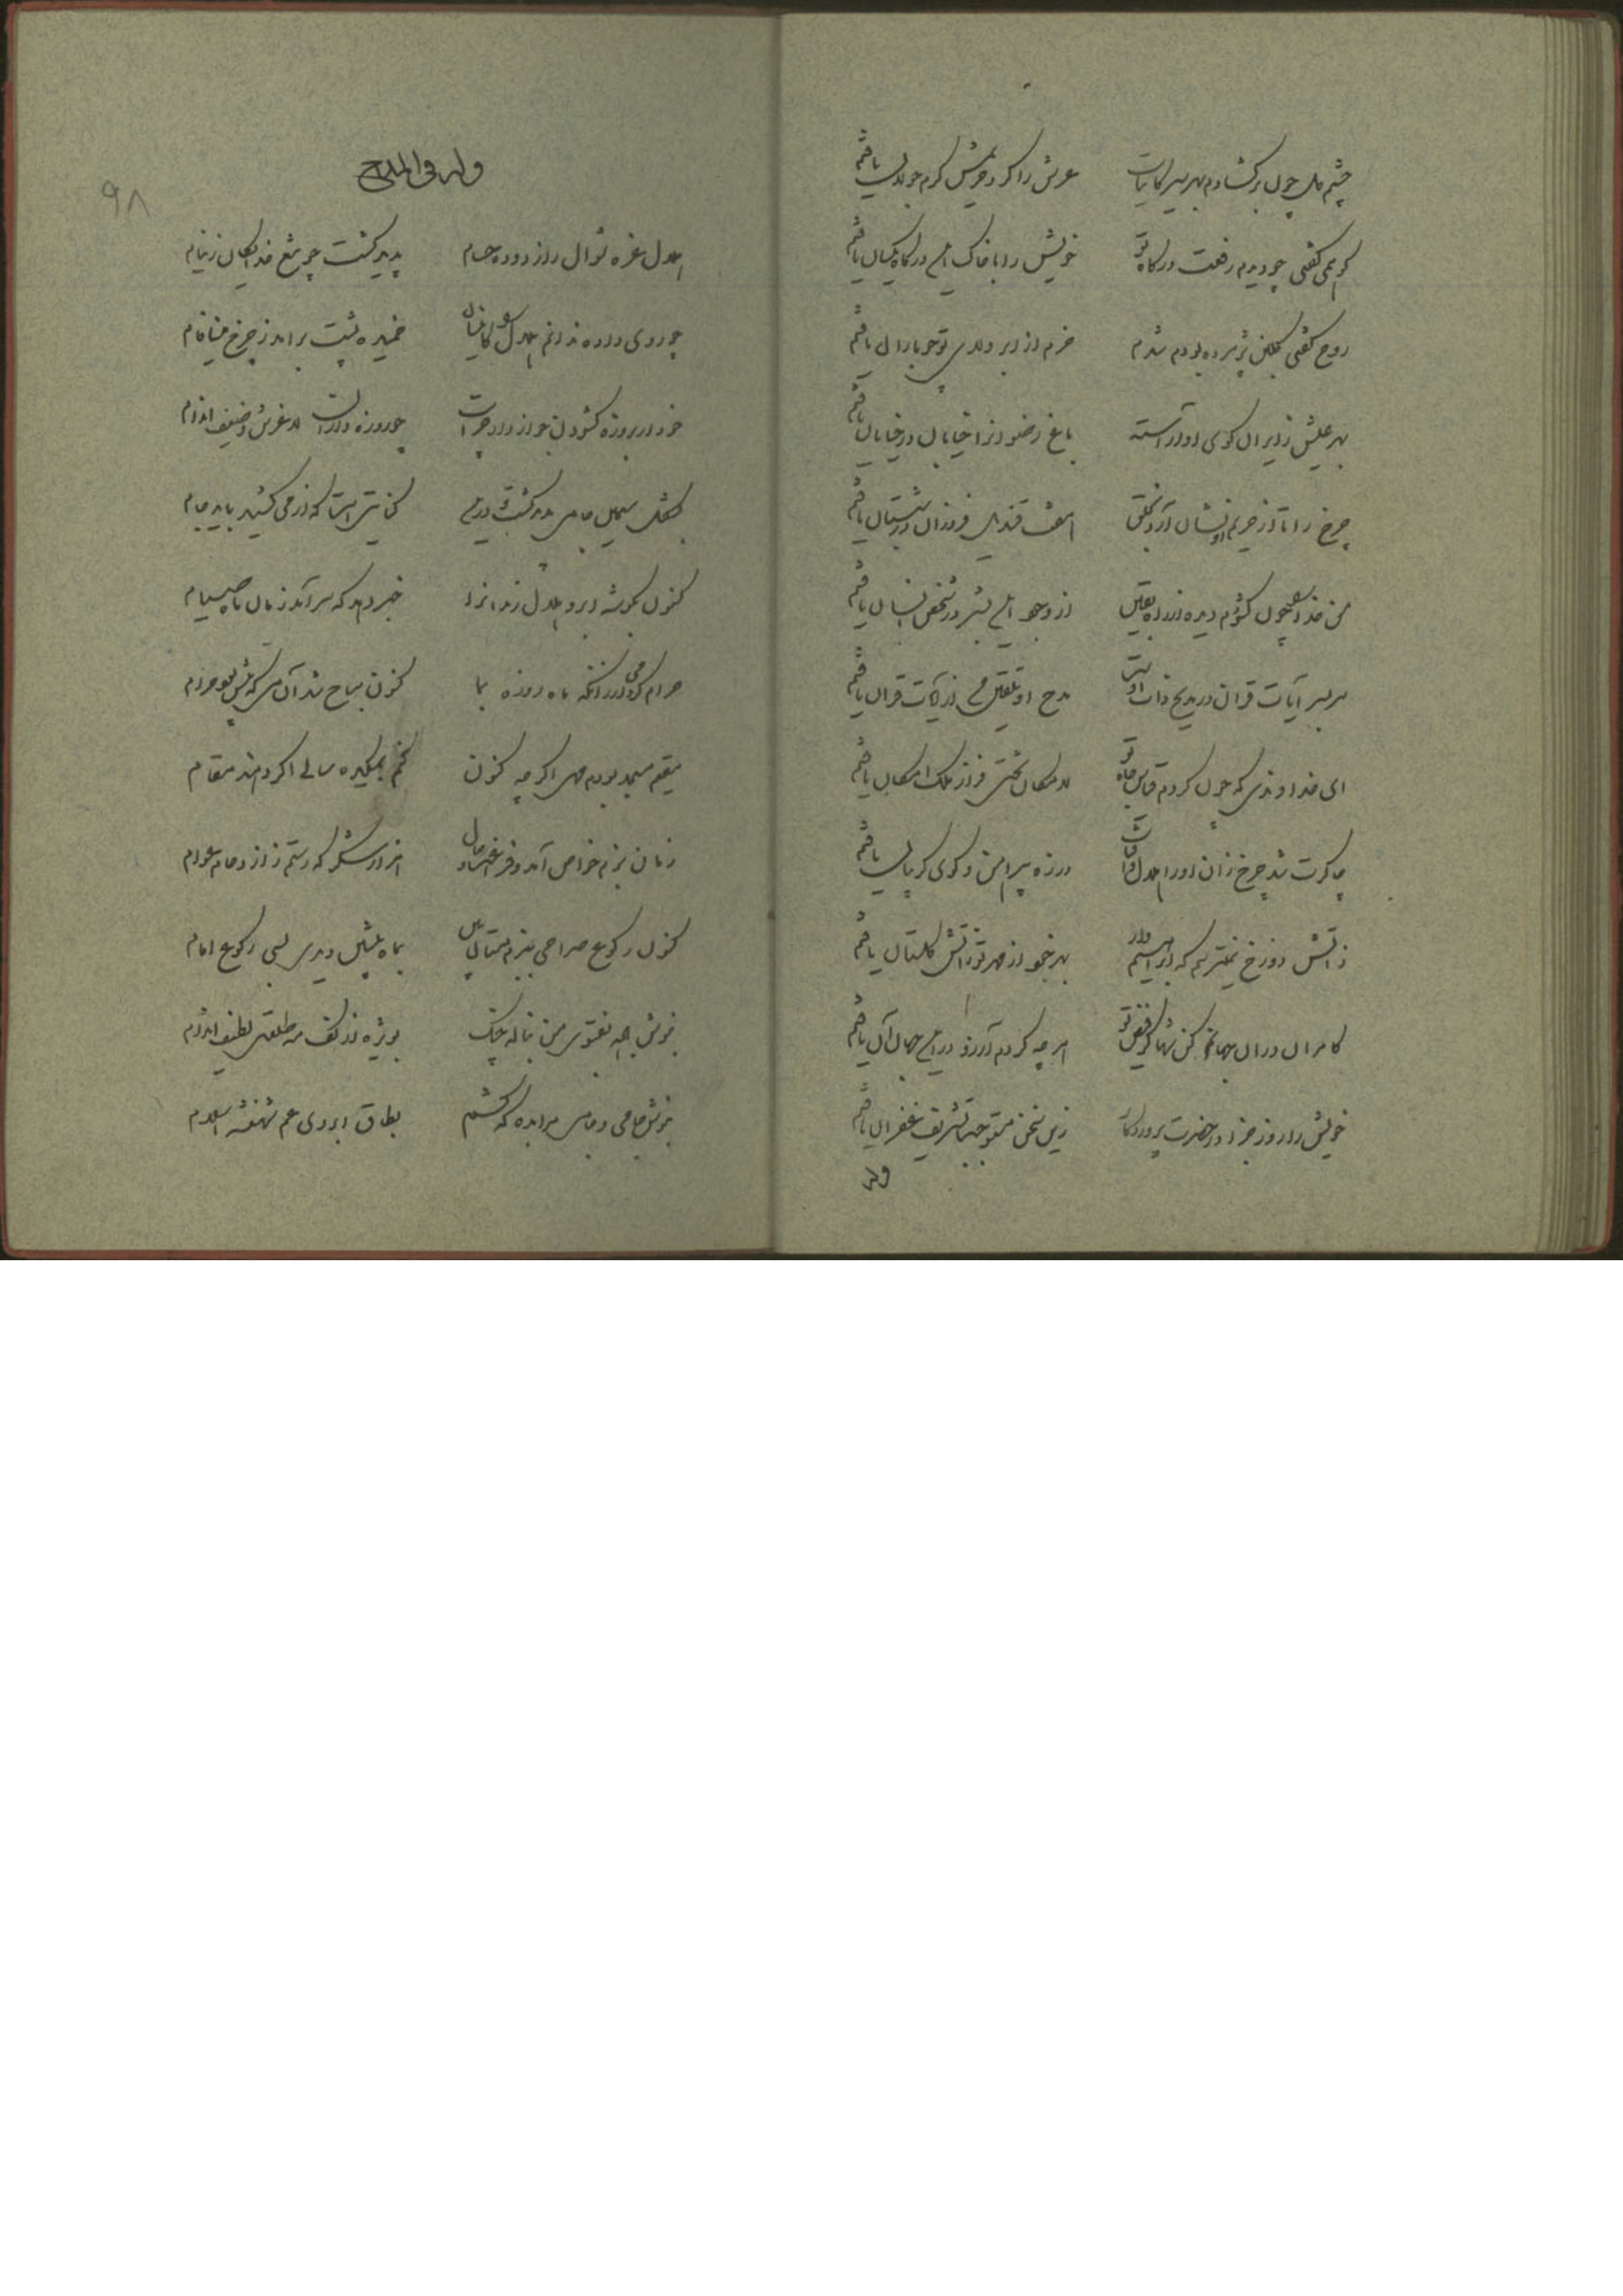 چشم دل چون برگشادم بهر سیر کاینات عرش را کرد فرش کرم جولان یافتم
گفتی چو دیدم رفعت درگاه تو خویش را با خاک این درگاه یکسان یافتم
روح گفتی گلبن پژمرده بودم شدم خرم از ابر ولای تو چو باران یافتم
بهر عیش زایران کوی او آراسته باغ رضوانرا خیابان در خیابان یافتم
چرخ را تا از حریم او نشان آرد بخلق قندیل فروزان در شبستان یافتم
من خدا چون گشودم دیده از راه یقین از وجود این بشر در شخص انسان یافتم
سربسر آیات قرآن در مدیح ذات اوست مدح او تلقین من از آیات قرآن یافتم
ای خداوندی که چون کردم قیاس جاه تو لامکان تختش فراز ملک امکان یافتم
چاکرت شد چرخ زان او را هلال و آفتاب درزه پیراهن و گوی گریبان یافتم
ز آتش دوزخ نمیترسم که ابراهیم وار بهر خود از مهر تو ز آتش گلستان یافتم
کامران در آن جهانم کن شها کز فیض تو هر چه کردم آرزو در این جهان آن یافتم
خویش را روز جزا در حضرت پروردگار زین سخن مستوجب تشریف غفران یافتم
وله
وله فی المدیح
۹۸
هلال غره شوال راز دوده حسام پدید گشت چو تیغ خدایگان ز نیام
چو روی داده ندانم هلال را خمیده پشت برآمد ز چرخ مینافام
خود ار بروزه گشودن جواز داد چراست چو روزه داران لاغرش و ضعیف اندام
بشکل سیمین جامی هلال گشت و در این کنایتی است که از می کشید باید جام
کنون بگوشه ابرو هلال رندانرا خبر دهد که سر آمد زمان ماه صیام
حرام کرد می ار زانکه ماه روزه بما کنون مباح شد آن می که پیش بود حرام
مقیم مسجد بودم مهی اگر چه کنون کنم بمیکده سالی اگر دهند مقام
زمان بزم خواص آمد و هزار شکر که رستم ز ازدحام عوام
کنون رکوع صراحی ببزم مستان بین بماه پیش دیدی بسی رکوع امام
بنوش باده بفتوی من بناله چنگ بویژه از کف مه طلعتی لطیف اندام
بنوش جامی و جامی مرا بده که کشم بطاق ابروی عم شهنشه اسلام